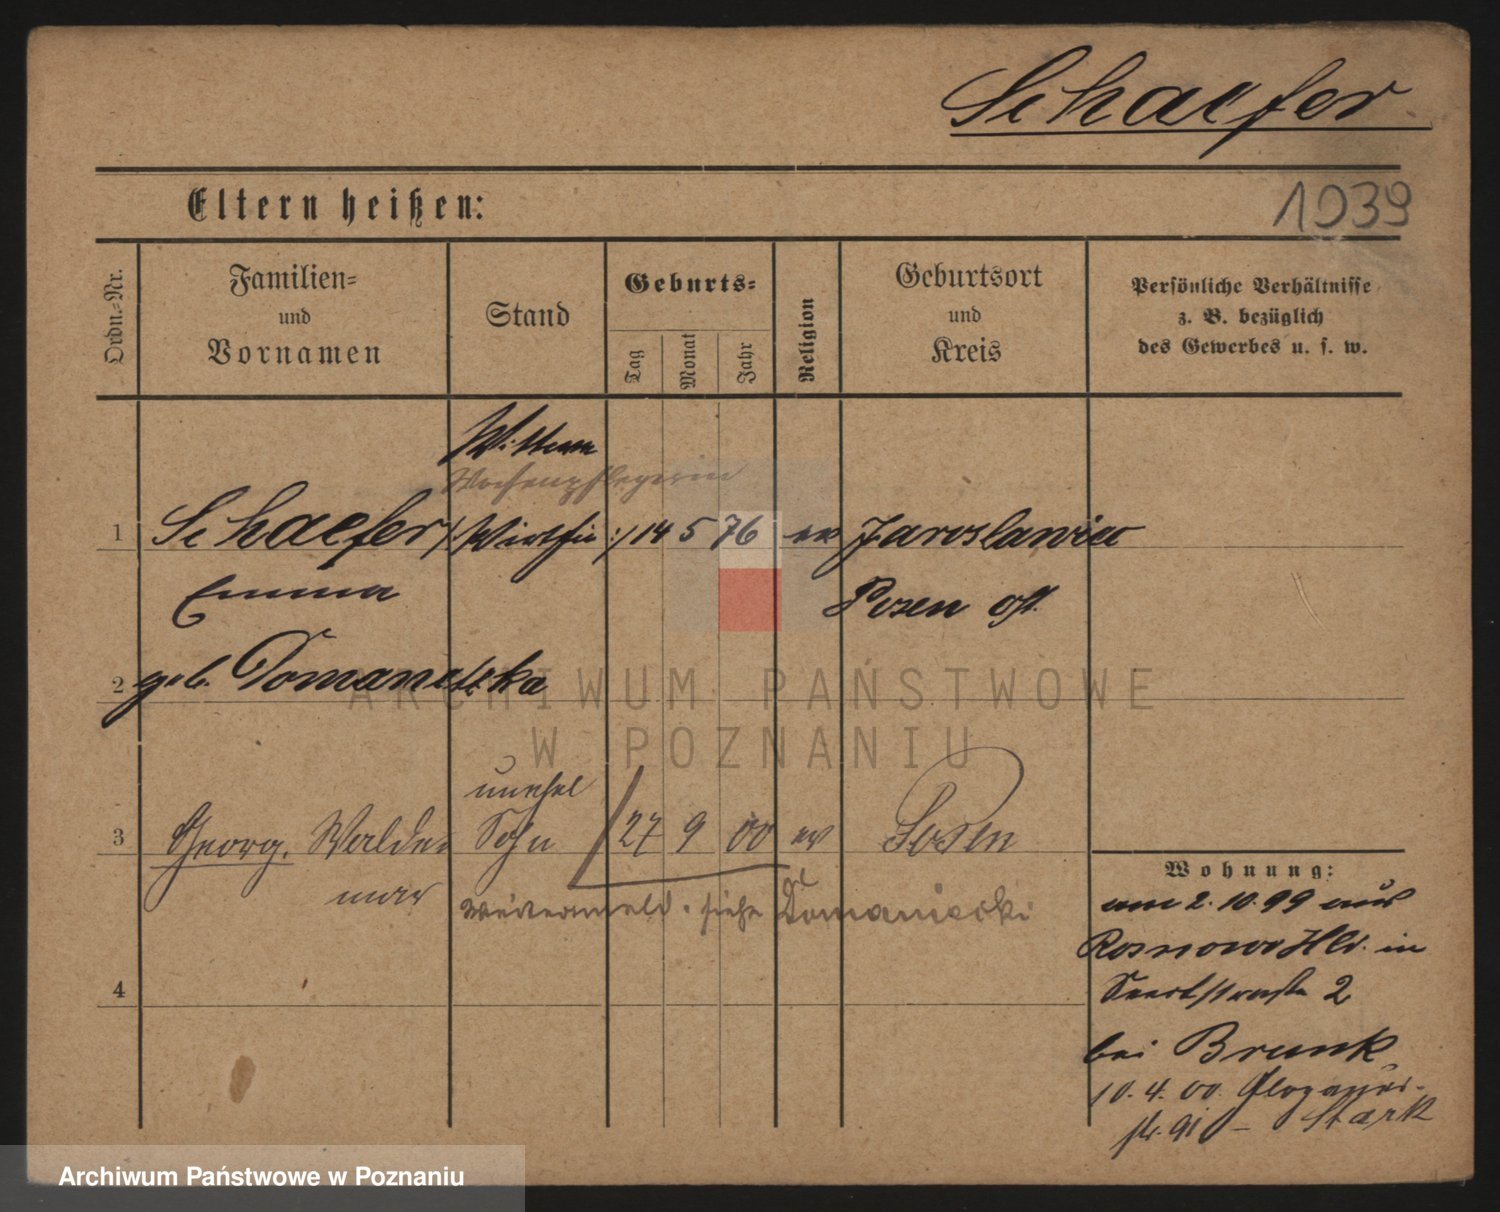 Schaefer
1939
Eltern heißen:
Ordn.-Nr.
Familien-
und
Vornamen
Stand
Geburts-
Tag
Monat
Jahr
Religion
Geburtsort
und
Kreis
Persönliche Verhältnisse
z. B. bezüglich
des Gewerbes u. s. w.
Wittwe
Wochenpflegerin
1 Schaefer /: Wirthin :/ 14 5 76 ev Jaroslawiec
Emma Posen Ost.
2 geb. Domanetzka
ARCHIWUM PAŃSTWOWE
W POZNANIU
unehel
3 Georg, Walde Sohn 27 9 00 ev Posen
mar
siehe Domaniecki
4
Wohnung:
am 2.10.99 aus
Rosnowo Hld. in
2
bei Brunk
10.4.00 Glogauer-
str. 91 – Stark
Archiwum Państwowe w Poznaniu